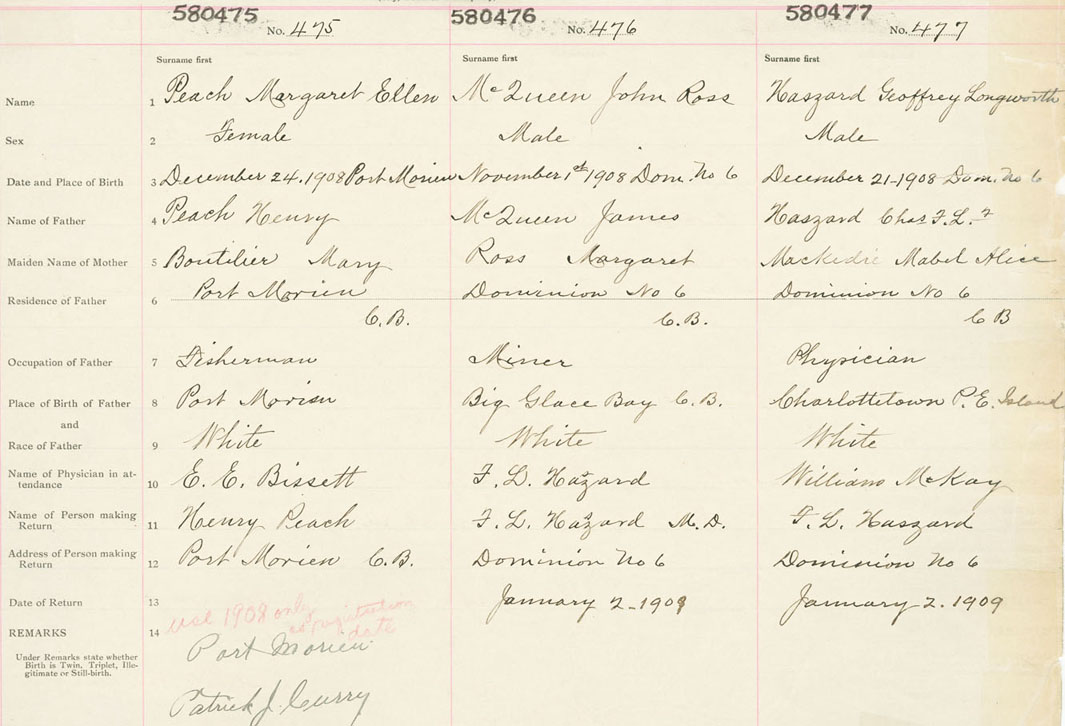 580475 580476 580477
No. 475 No. 476 No. 477
Surname first Surname first Surname first
Name 1 Peach Margaret Ellen McQueen John Ross Haszard Geoffrey Longworth
Sex 2 Female Male Male
Date and Place of Birth 3 December 24, 1908 Port Morien November 1st 1908 Dom. No 6 December 21-1908 Dom. No 6
Name of Father 4 Peach Henry McQueen James Haszard Chas F. L.
Maiden Name of Mother 5 Boutilier Mary Ross Margaret Mackedie Mabel Alice
Residence of Father 6 Port Morien Dominion No 6 Dominion No 6
C.B. C.B. C B
Occupation of Father 7 Fisherman Miner Physician
Place of Birth of Father 8 Port Morien Big Glace Bay C.B. Charlottetown P.E. Island
and
Race of Father 9 White White White
Name of Physician in at-
tendance 10 E. E. Bissett F. L. Hazard William McKay
Name of Person making
Return 11 Henry Peach F. L. Hazard M.D. F. L. Haszard
Address of Person making
Return 12 Port Morien C.B. Dominion No 6 Dominion No 6
Date of Return 13 January 2-1909 January 2. 1909
use 1908 only
as registration
date
REMARKS 14 Port Morien
Under Remarks state whether
Birth is Twin, Triplet, Ille-
gitimate or Still-birth.
Patrick J. Curry